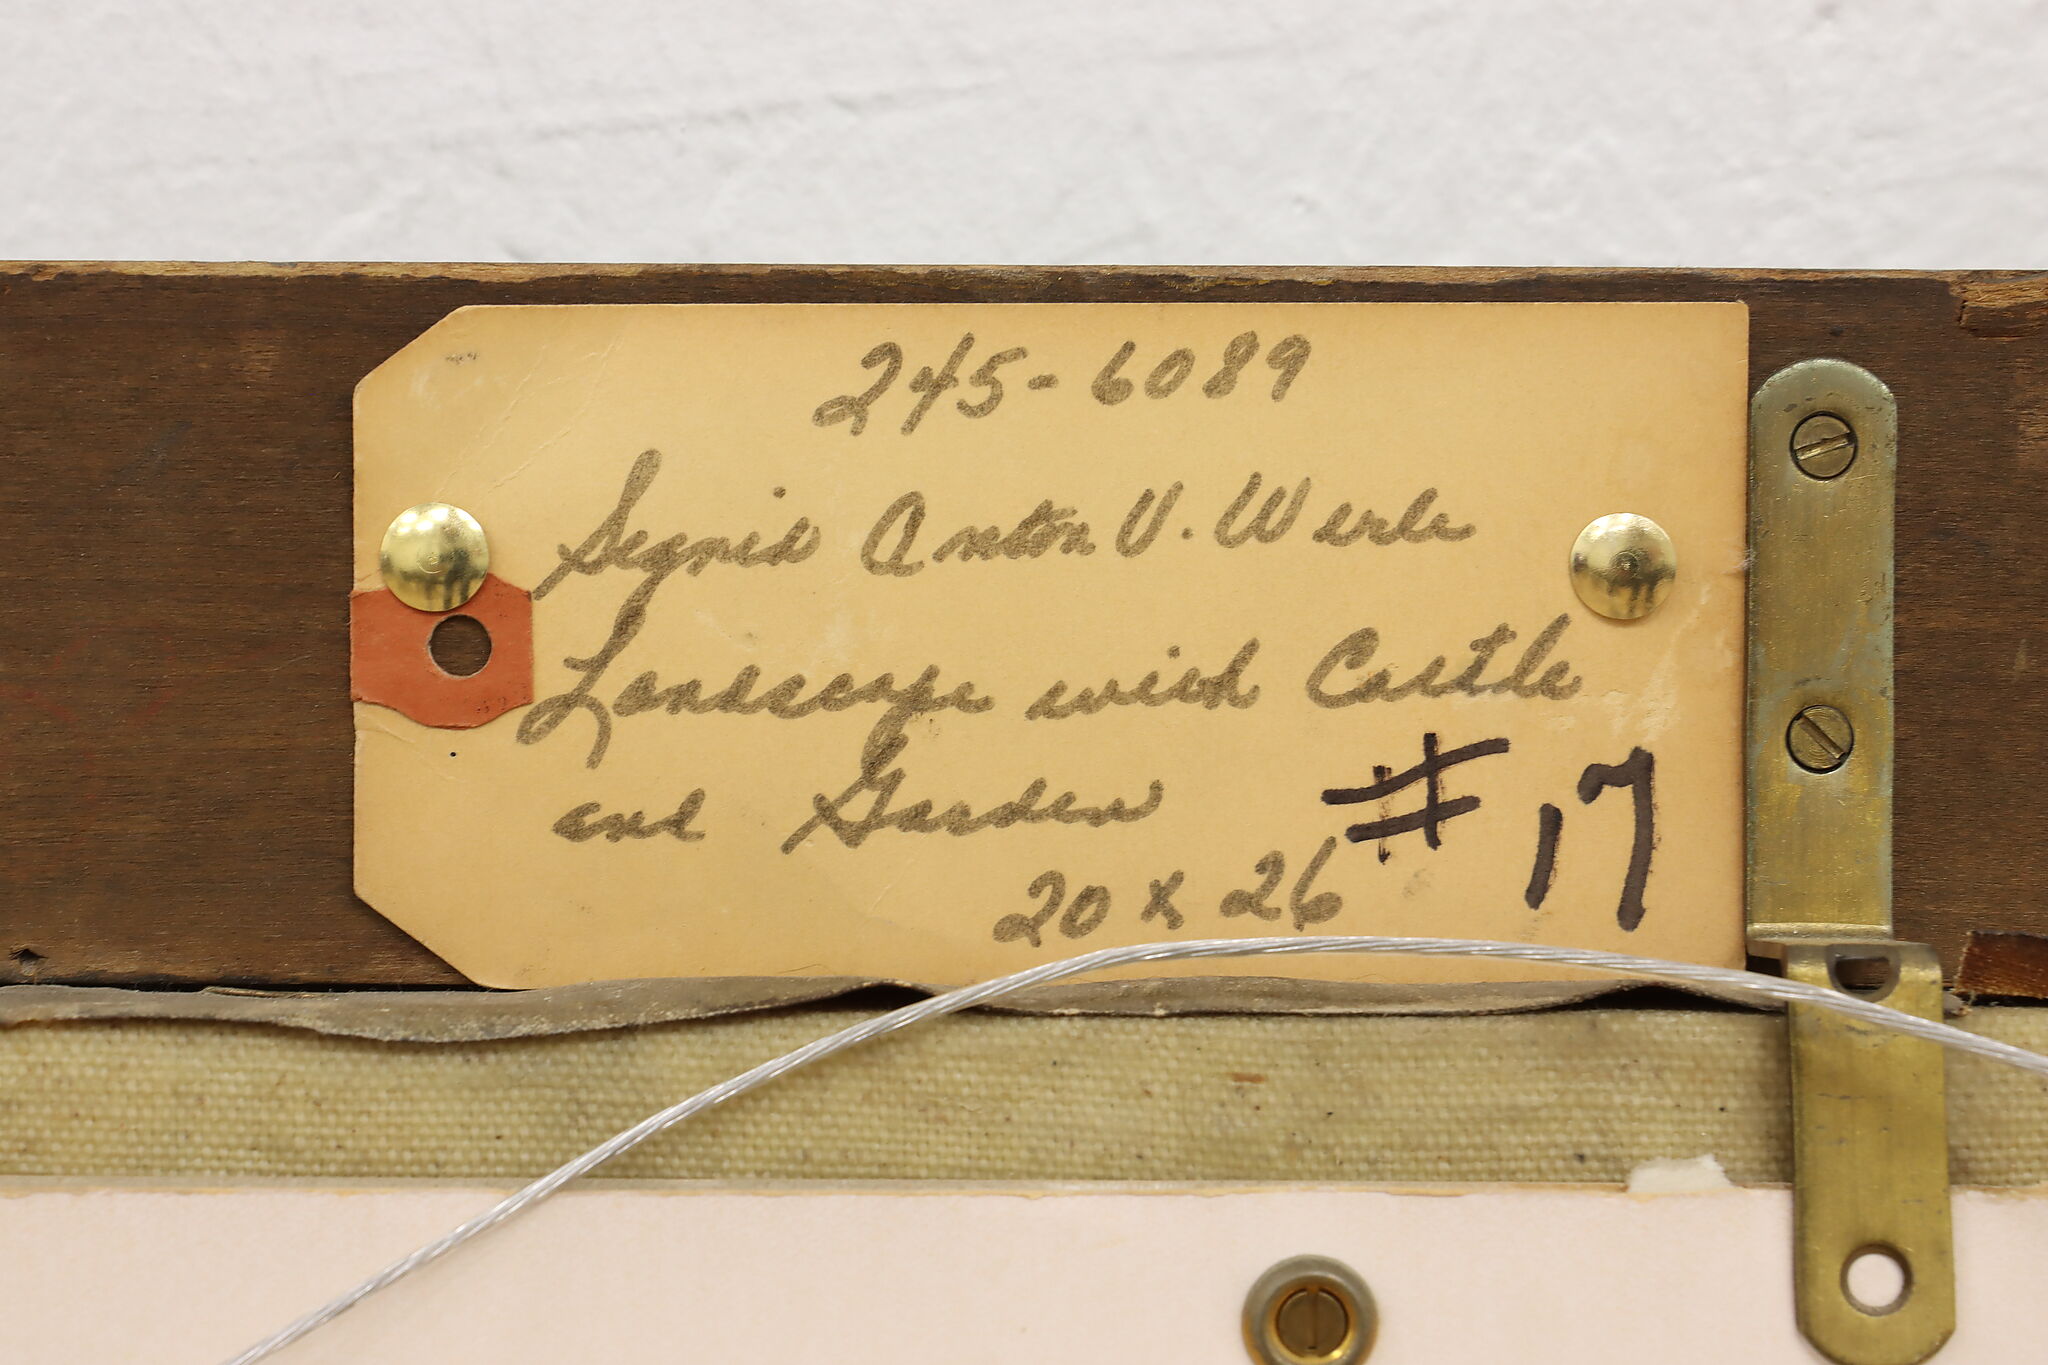 245-6089
Signed Anton V. Werle
Landscape with Castle
and Garden
#17
20 x 26